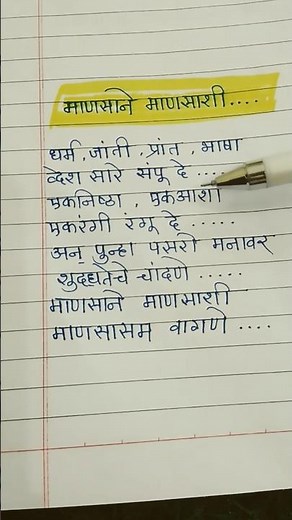 माणसाने माणसाशी.....
धर्म ,जाती , प्रांत , भाषा
द्वेश सारे संपू दे ....
एकनिष्ठा , एकआशा
एकरंगी रंगू दे ......
अन् पुन्हा पसरो मनावर
शुद्धतेचे चांदणे .....
माणसाने माणसाशी
माणसासम वागणे ....